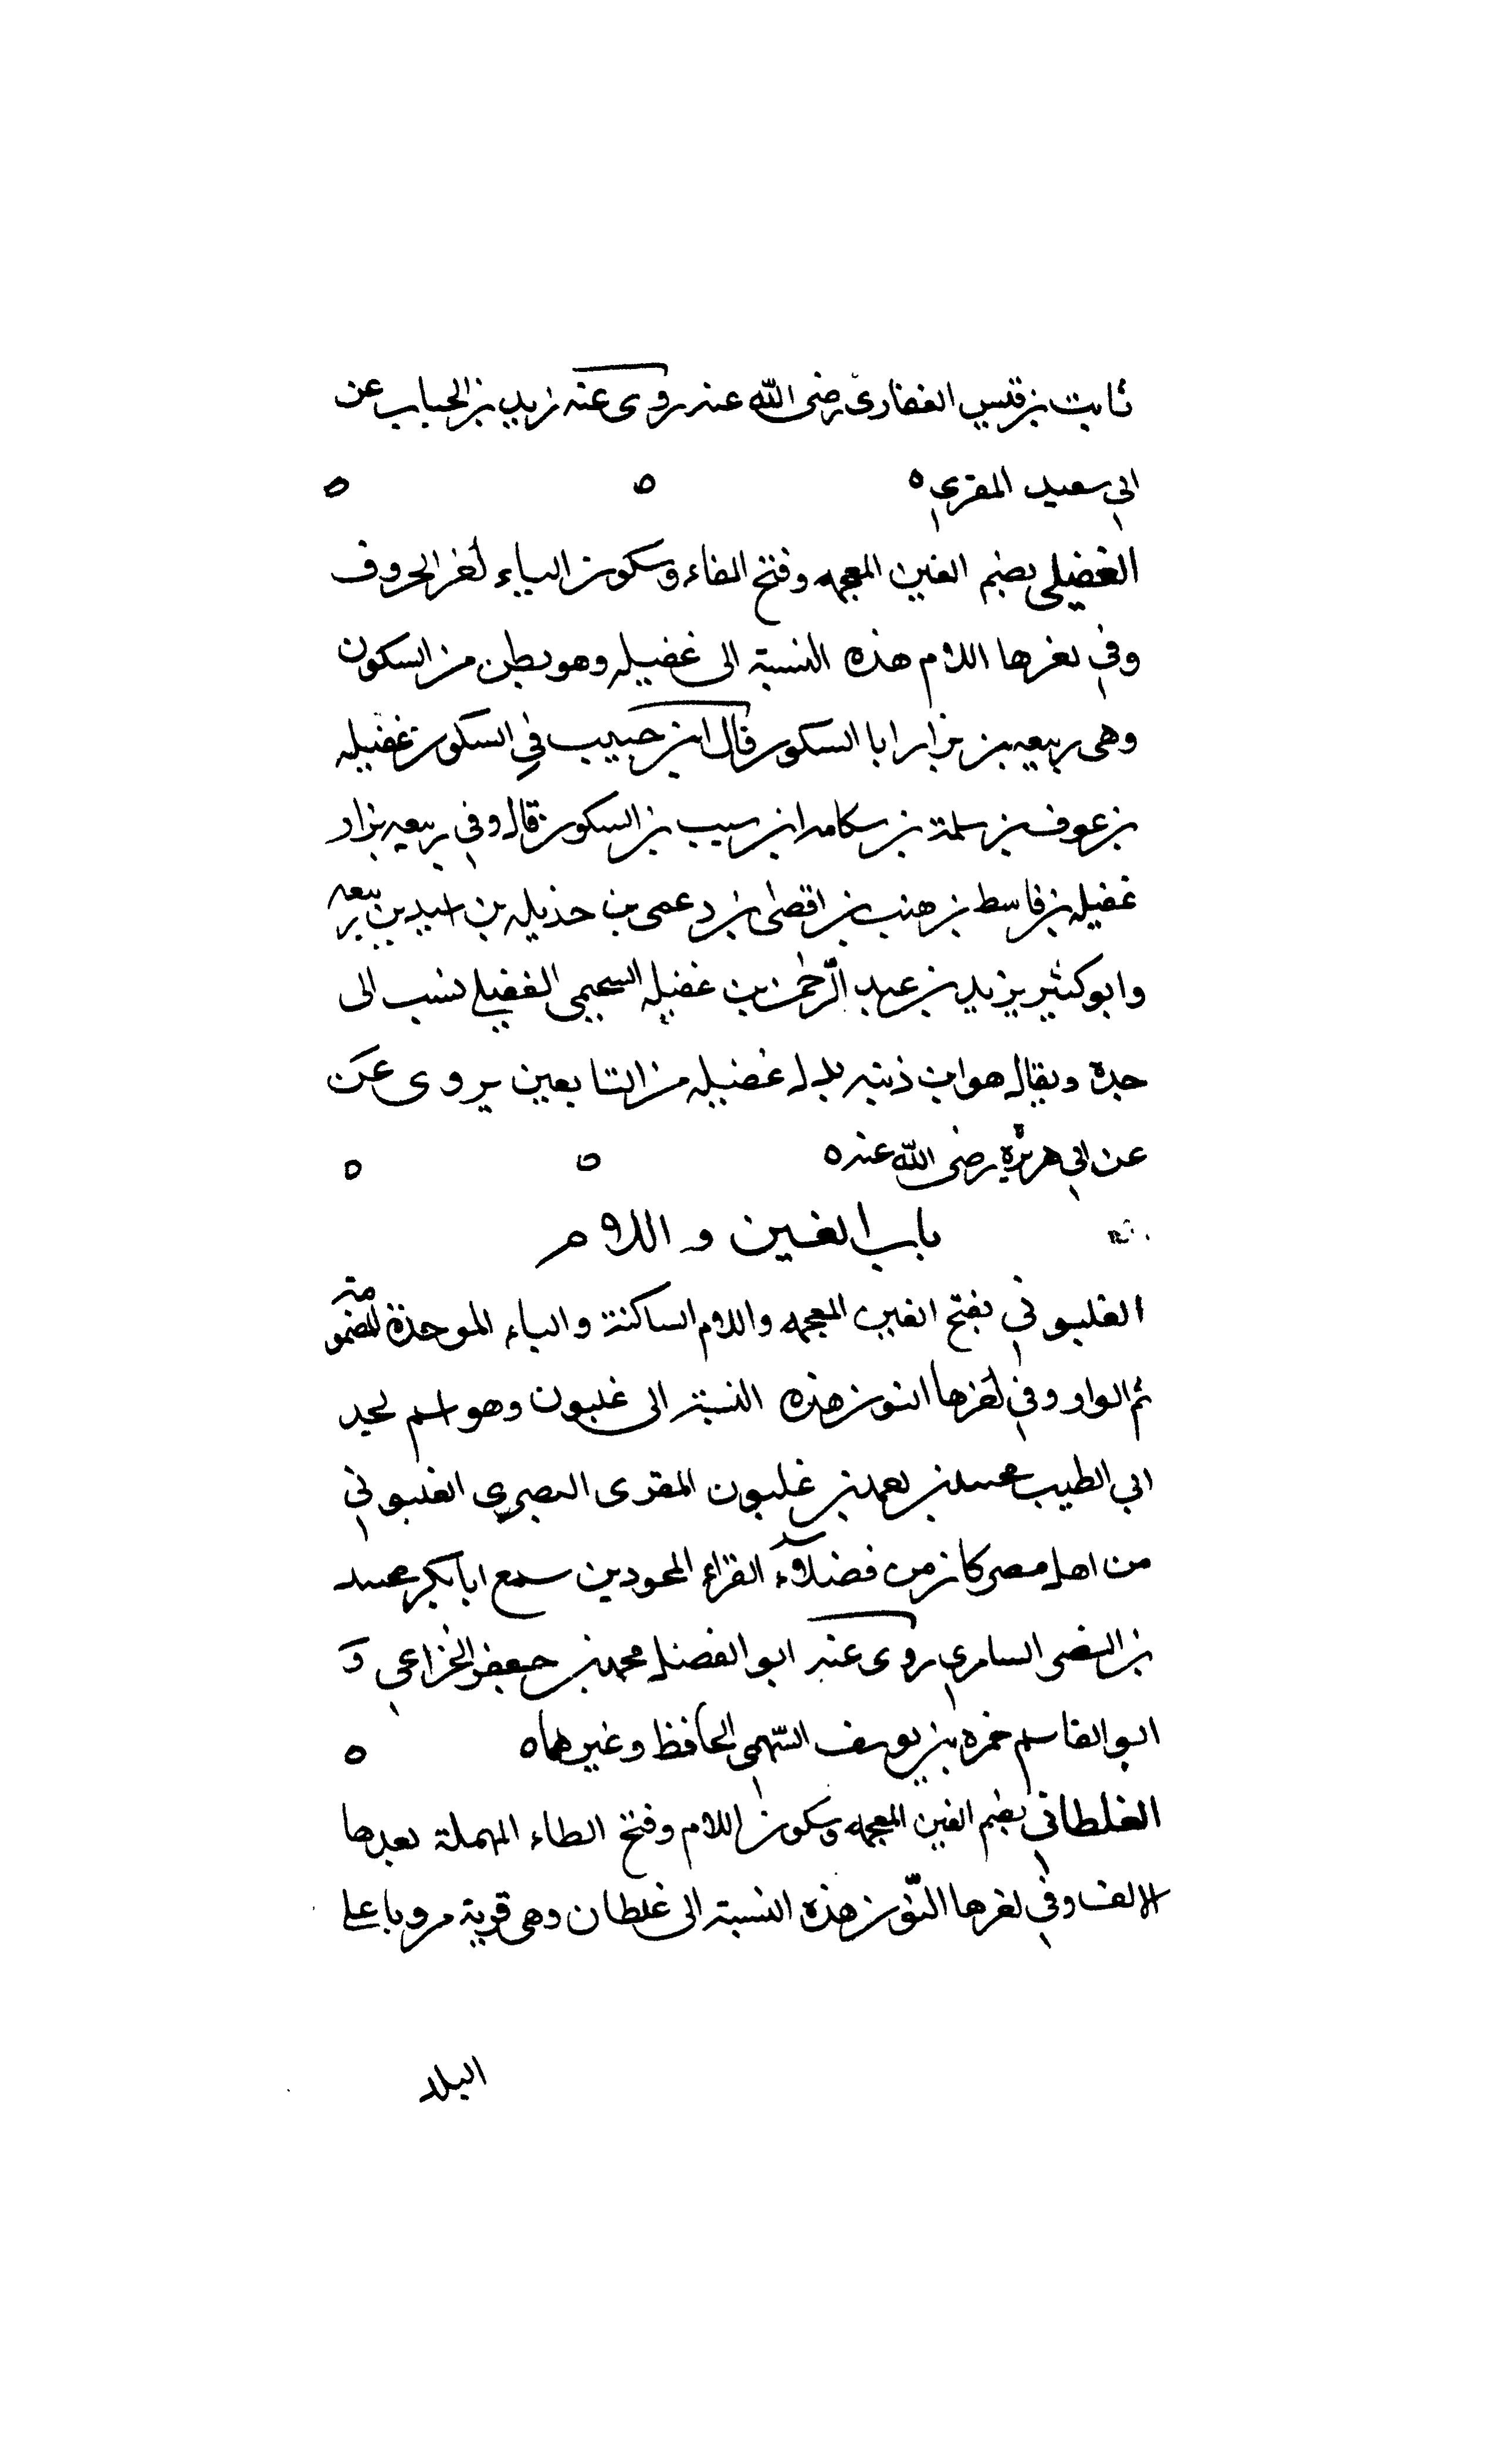 ثابت بن قيس الغفارى رضى الله عنه روى عنه زيد بن الحباب عن
ابى سعيد المقرى ه ه ه
الغفيلى بضم الغين المعجمه وفتح الفاء وسكون الياء اخر الحروف
وفى اخرها اللام هذه النسبة الى غفيله وهو بطن من السكون
وهى ربيعه بن نزار ابا السكون قال ابن حبيب فى السكون غفيله
بن عوف بن سلمة بن سكامه ابن سيب بن السكون قال وفى ربيعه نزار
غفيله بن قاسط بن هنب بن اقصى بن دعمى بن حذيله بن اسيد بن ربيعه
وابو كثير يزيد بن عبد الرحمن بن غفيله السحيمى الغفيلى نسب الى
جده ويقال هو ابن ذينه بدل غفيله من التابعين يروى عن
عن ابى هريرة رضى الله عنه ه ه ه
باب الغين واللام
الغلبونى بفتح الغين المعجمه واللام الساكنة والباء الموحدة المضمومة
ثم الواو وفى اخرها النون هذه النسبة الى غلبون وهو اسم لجد
ابى الطيب محمد بن احمد بن غلبون المقرى المصرى الغلبونى
من اهل مصر كان من فضلاء القراء المجودين سمع ابا بكر محمد
بن النضر السامرى روى عنه ابو الفضل محمد بن جعفر الخزاعى و
ابو القاسم حمزه بن يوسف السهمى الحافظ وغيرهما ه ه
الغلطانى بضم الغين المعجمه وسكون اللام وفتح الطاء المهملة بعدها
الالف وفى اخرها النون هذه النسبة الى غلطان وهى قرية مرو باعلى
البلد